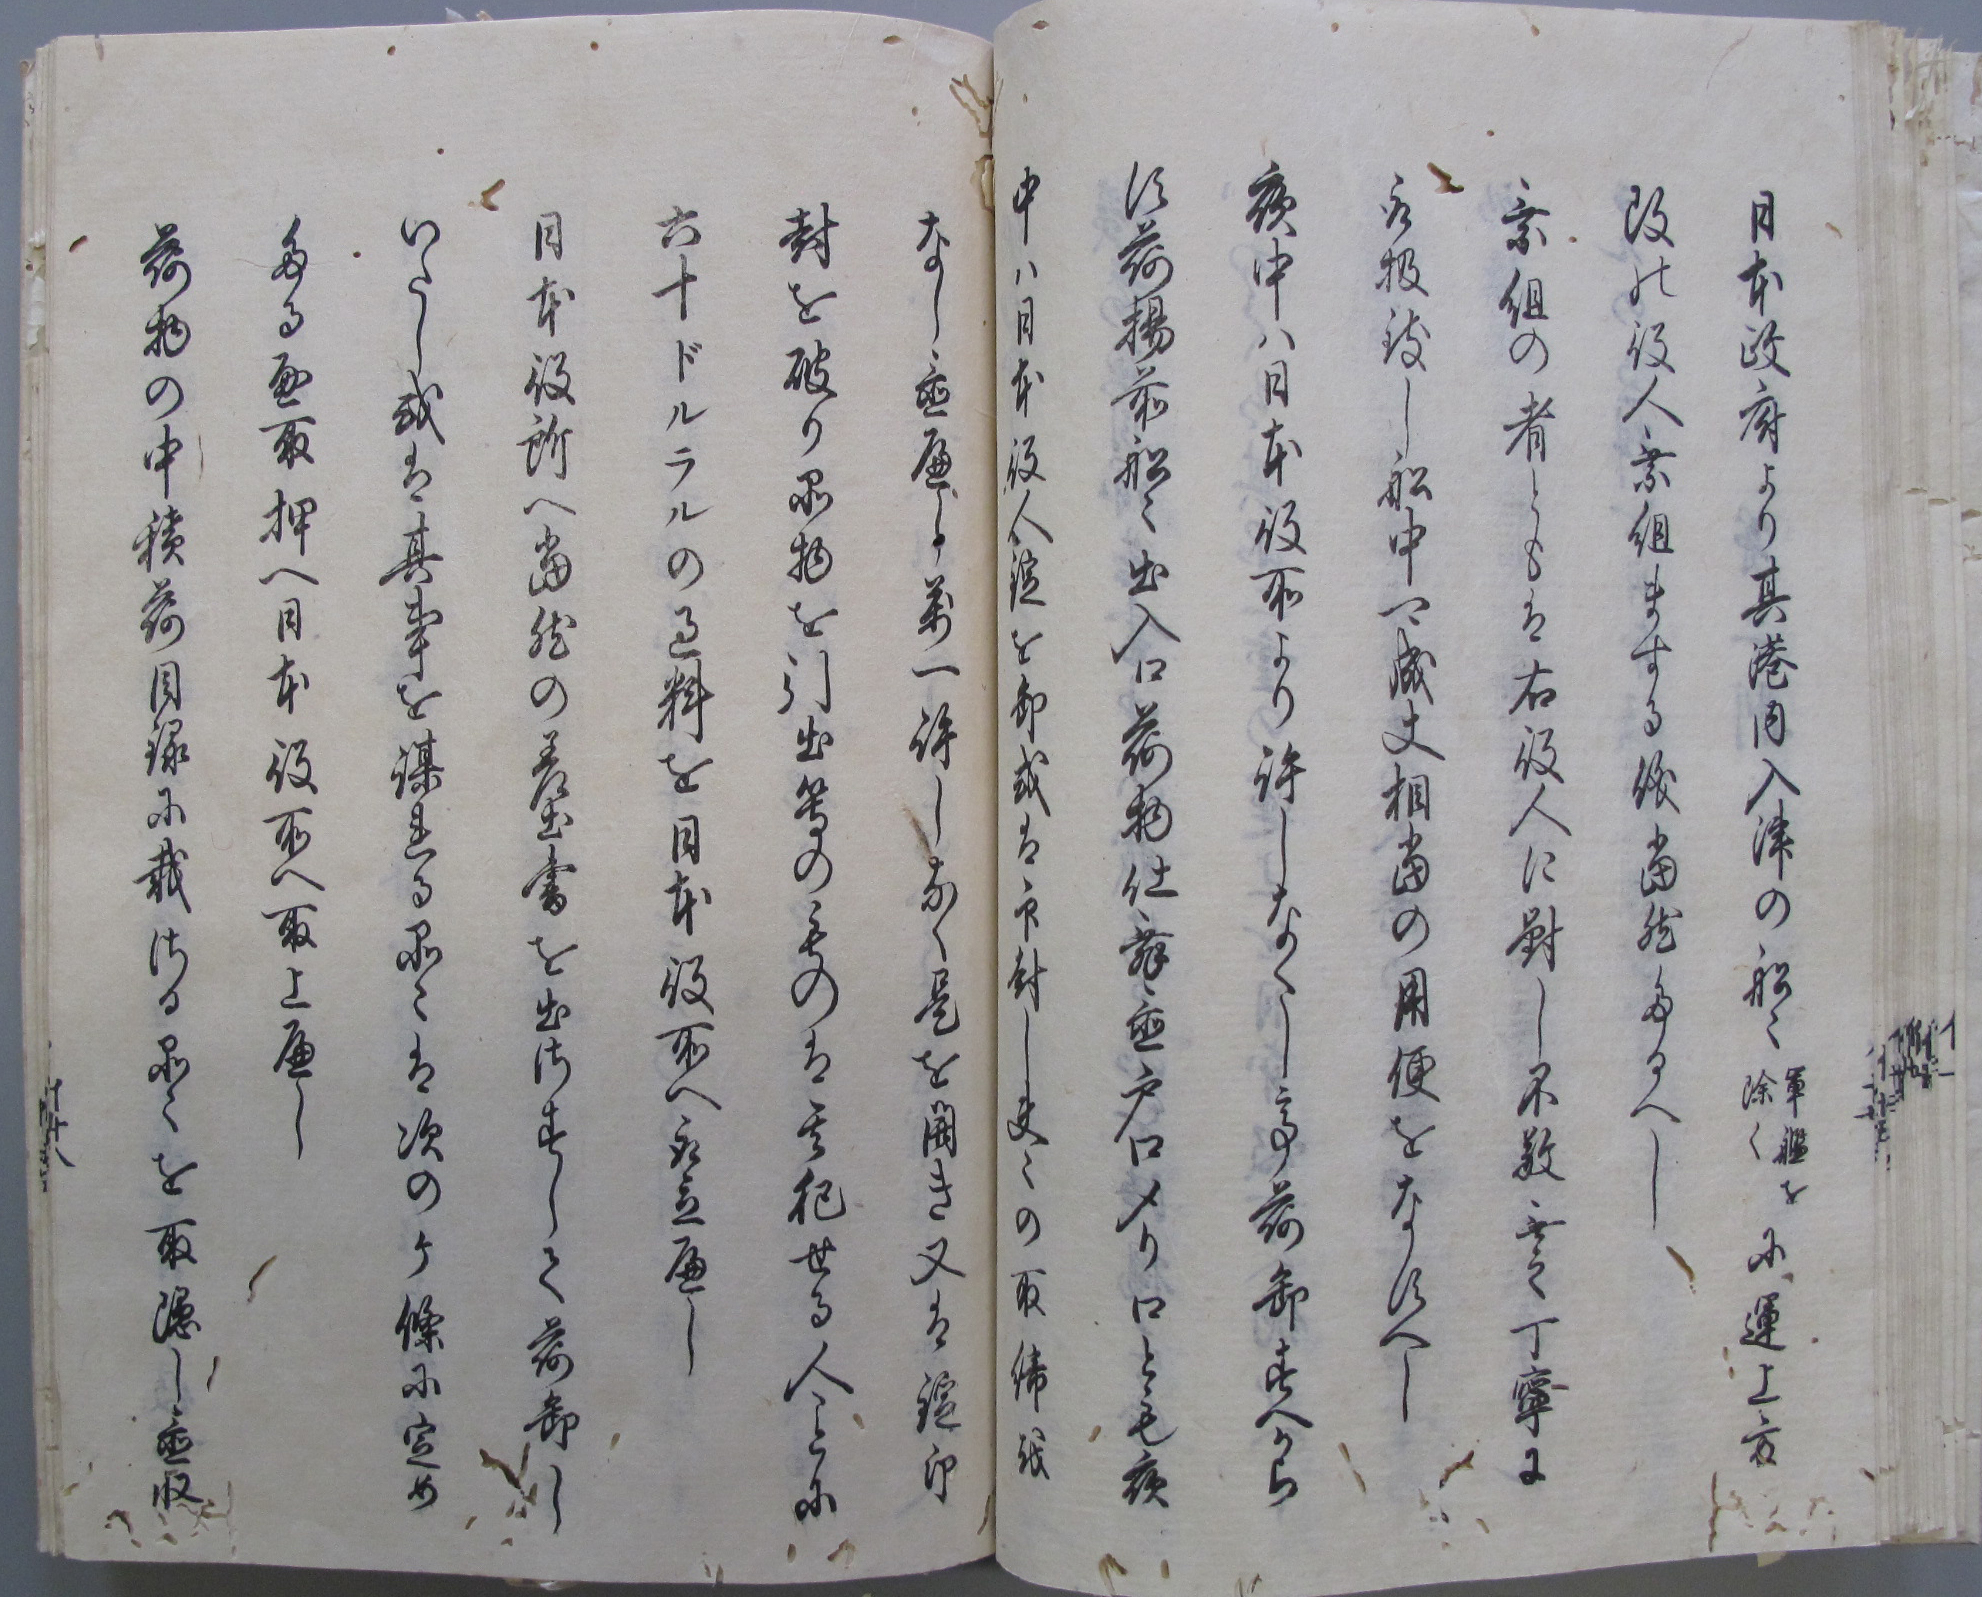 日本政府より其港内入津の船々軍艦を除く尓運上方
改の役人乗組まする儀当然多るへし
乗組の者ともは右役人に對し不敬無之丁寧に
取扱致し船中可成丈相當の用便をなすへし
夜中ハ日本役所より許しなくし亭荷卸すへから
す荷揚荷船々出入口荷物仕舞並戸口〆り口とも夜
中ハ日本役人錠を卸或は印封し夫々の取締越
なし並廉し萬一許しなく是を開き又は錠印
封を破り品物を引出等のものは其犯せる人ことに
六十ドルラルの過料を日本役所へ取立廉し
日本役所へ當然の差出書を出さすして荷卸し
いたし或は其事を謀連る品々は次のケ條尓定め
多る通取押へ日本役所へ取上廉し
荷物の中積荷目録尓載さる品々を取隠し並収